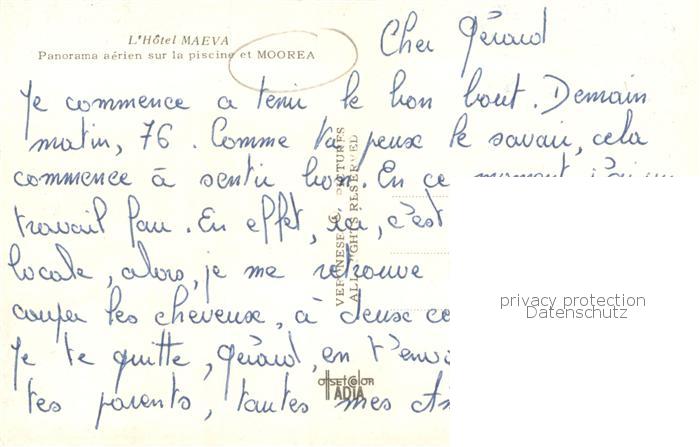 L'Hôtel MAEVA
Panorama aérien sur la piscine et MOOREA
Cher Gérard
Je commence a tenir le bon bout. Demain
matin, 76. Comme tu peux le savoir, cela
commence à sentir bon. En ce moment j'ai un
travail fou. En effet, ici, c'est
locale, alors, je me retrouve
couper les cheveux, à deux
Je te quitte, Gérard, en t'envo
tes parents, toutes mes
ALL RIGHTS RESERVED
offset color
TADIA
privacy protection
Datenschutz